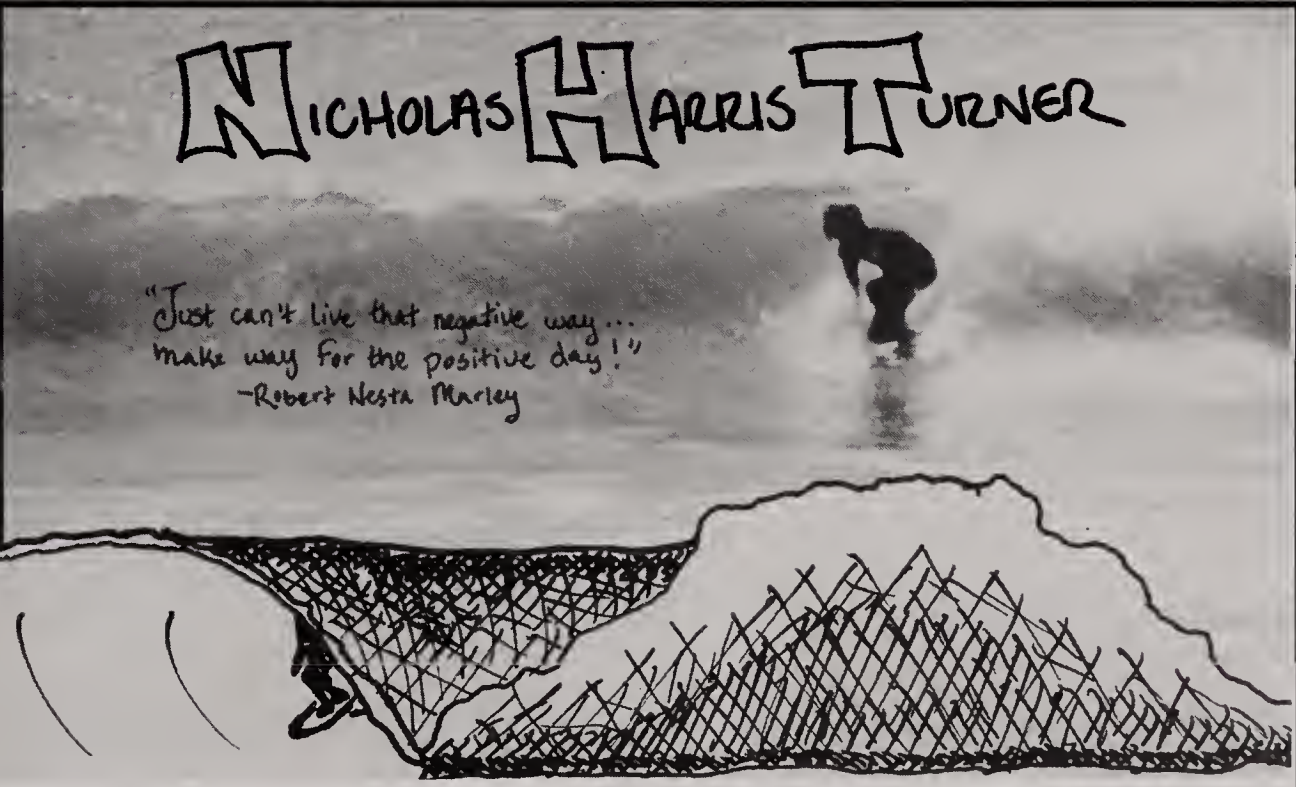 NICHOLAS HARRIS TURNER
"Just can't live that negative way...
make way for the positive day!"
-Robert Nesta Marley